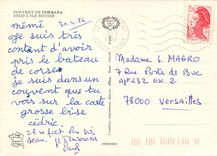 COUVENT DE CORBARA
20220 L'ILE ROUSSE
mémé
je suis très
content d'avoir
pris le bateau
de corse
je suis dans un
couvent que tu
vois sur la carte
grosse bise
cédric
Il a fait les bis
Paul
Madame L. MAGRO
7 Rue Porte de Buc
78000 Versailles